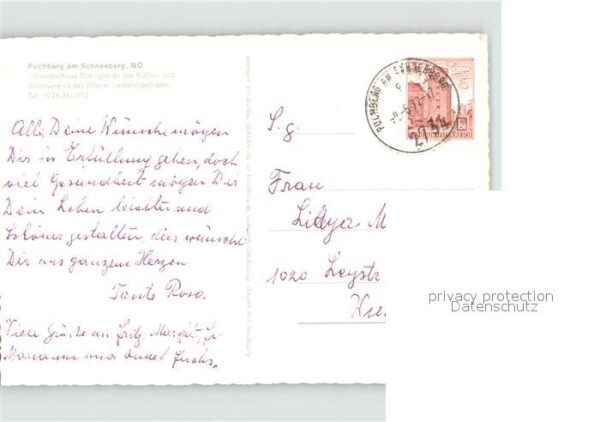 Puchberg am Schneeberg, NÖ
Sportvereins der Wiener Verkehrsbetriebe.
Tel. (0 26 36) 212
Alle Deine Wünsche mögen
Dir in Erfüllung gehen, doch
viel Gesundheit mögen Dir
Dein Leben leichter und
schöner gestalten, dies wünscht
Dir aus ganzem Herzen
Tante Rosa.
Viele Grüße an Fritz Margit,
Mariann und Onkel Fuchs.
PUCHBERG AM SCHNEEBERG
2734
S. g.
Frau
Lidya M
1020 Leystr
Wie
privacy protection
Datenschutz